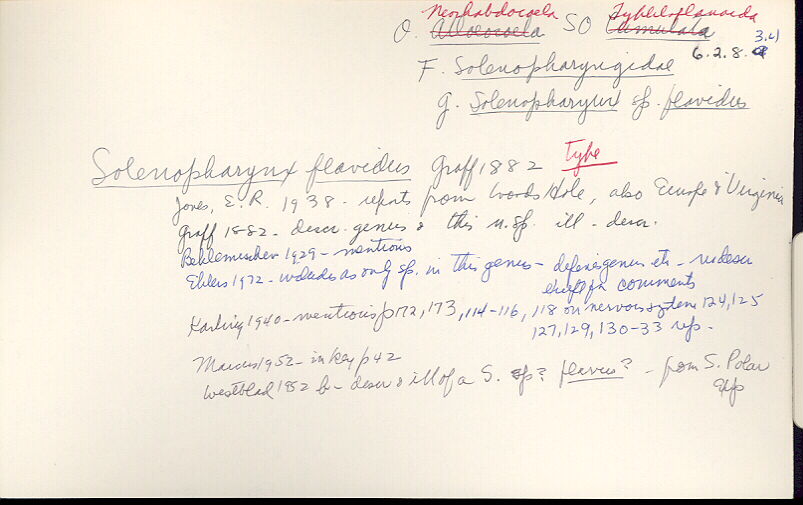 Neorhabdocoela Typhloplanoida
O. Alloeocoela SO Cumulata 3.4)
6.2.8.
F. Solenopharyngidae
g. Solenopharynx sp. flavidus
Solenopharynx flavidus Graff 1882 Type
Jones, E. R. 1938 - reports from Woods Hole, also Europe & Virginia
Graff 1882 - descr. genus & this n. sp. ill - descr.
Beklemischev 1929 - mentions
Ehlers 1972 - includes as only sp. in this genus - defines genus etc - redescr
comments
Karling 1940 - mentions p 172, 173, 114-116, 118 on nervous system 124, 125
127, 129, 130-33 reps -
Marcus 1952 - in key p 42
Westblad 1952 b - descr & ill of a S. sp? flavus? - from S. Polar
Exp